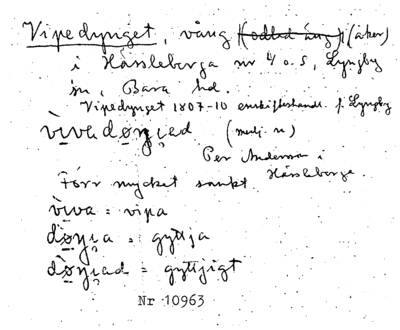 Vipedynget, vång (odlad äng) (åker)
i Hässleberga nr 4 o. 5, Lyngby
sn, Bara hd.
Vipedynget 1807-10 enskifteshandl. f. Lyngby
(medj. n)
Per Andersson i
Hässleberga
Förr mycket sankt
vìva = vipa
= gyttja
= gyttjigt
Nr 10963